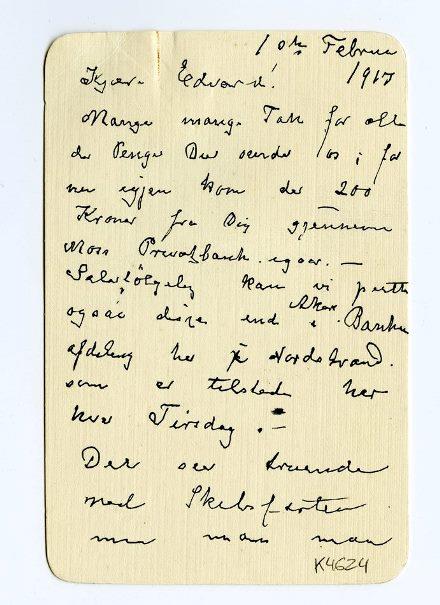 10de Februar
Kjære Edvard! 1917
Mange mange Tak for alle
de Penge Du sender os i for
nu igjen kom der 200
Kroner fra Dig gjennem
Moss Privatbank igaar. —
kan vi
ogsaa disse end i Aker Banken
afdeling her på Nordstrand.
som er tilstede her
hver Tirsdag. —
Det ser truende
med Skibsfarten
men man maa
K4624